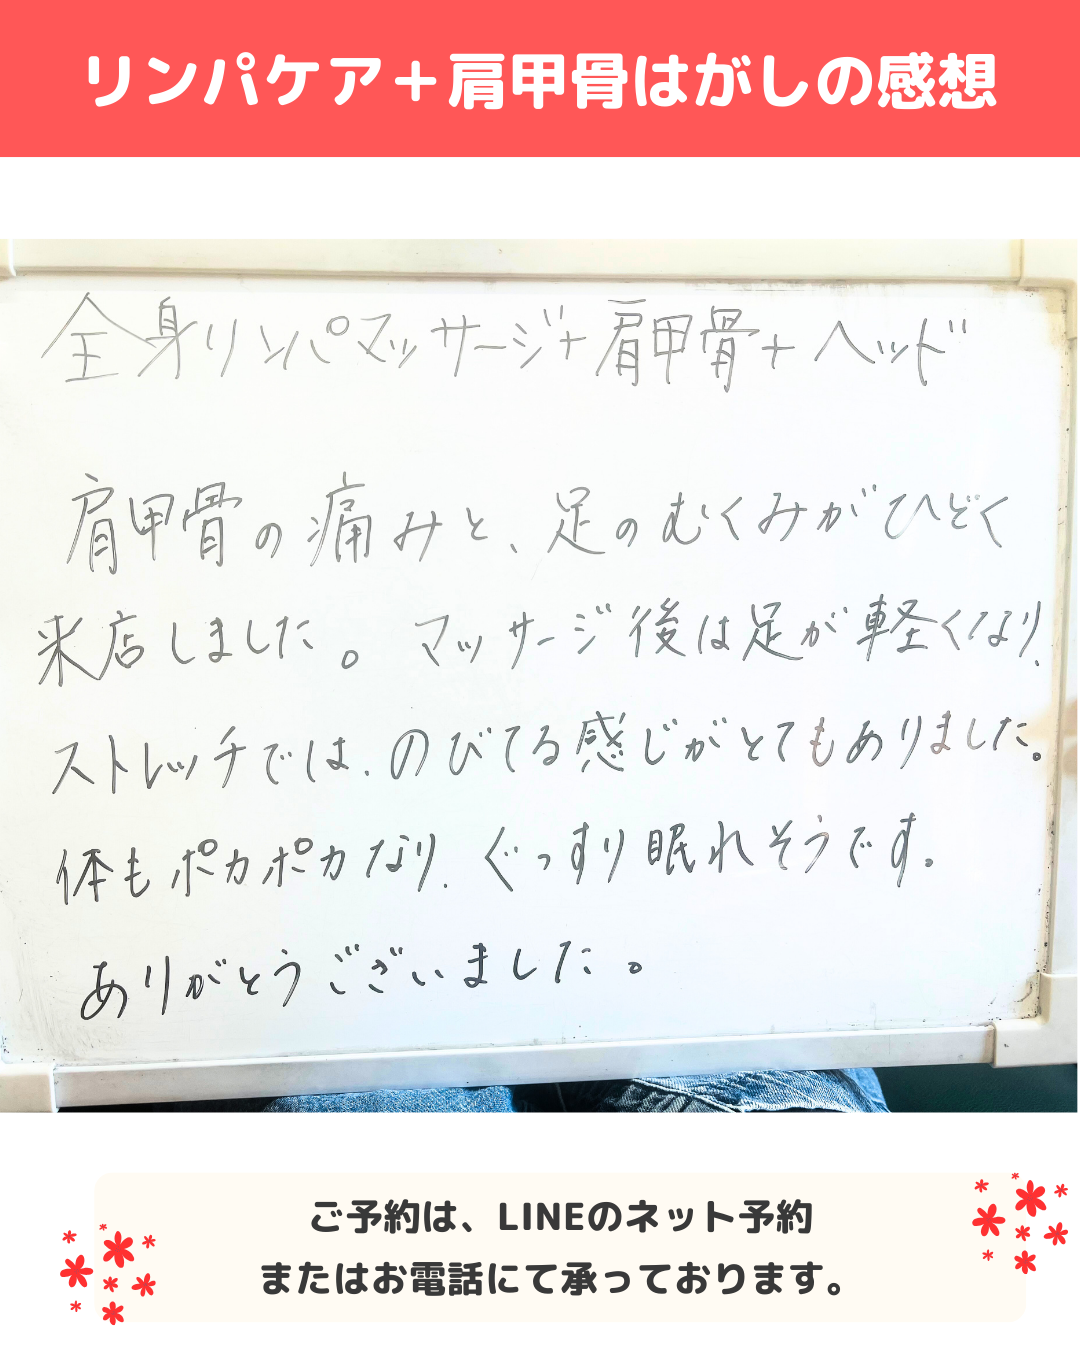 リンパケア＋肩甲骨はがしの感想
全身リンパマッサージ+肩甲骨+ヘッド
肩甲骨の痛みと、足のむくみがひどく
来店しました。マッサージ後は足が軽くなり、
ストレッチでは、のびてる感じがとてもありました。
体もポカポカなり、ぐっすり眠れそうです。
ありがとうございました。
ご予約は、LINEのネット予約
またはお電話にて承っております。